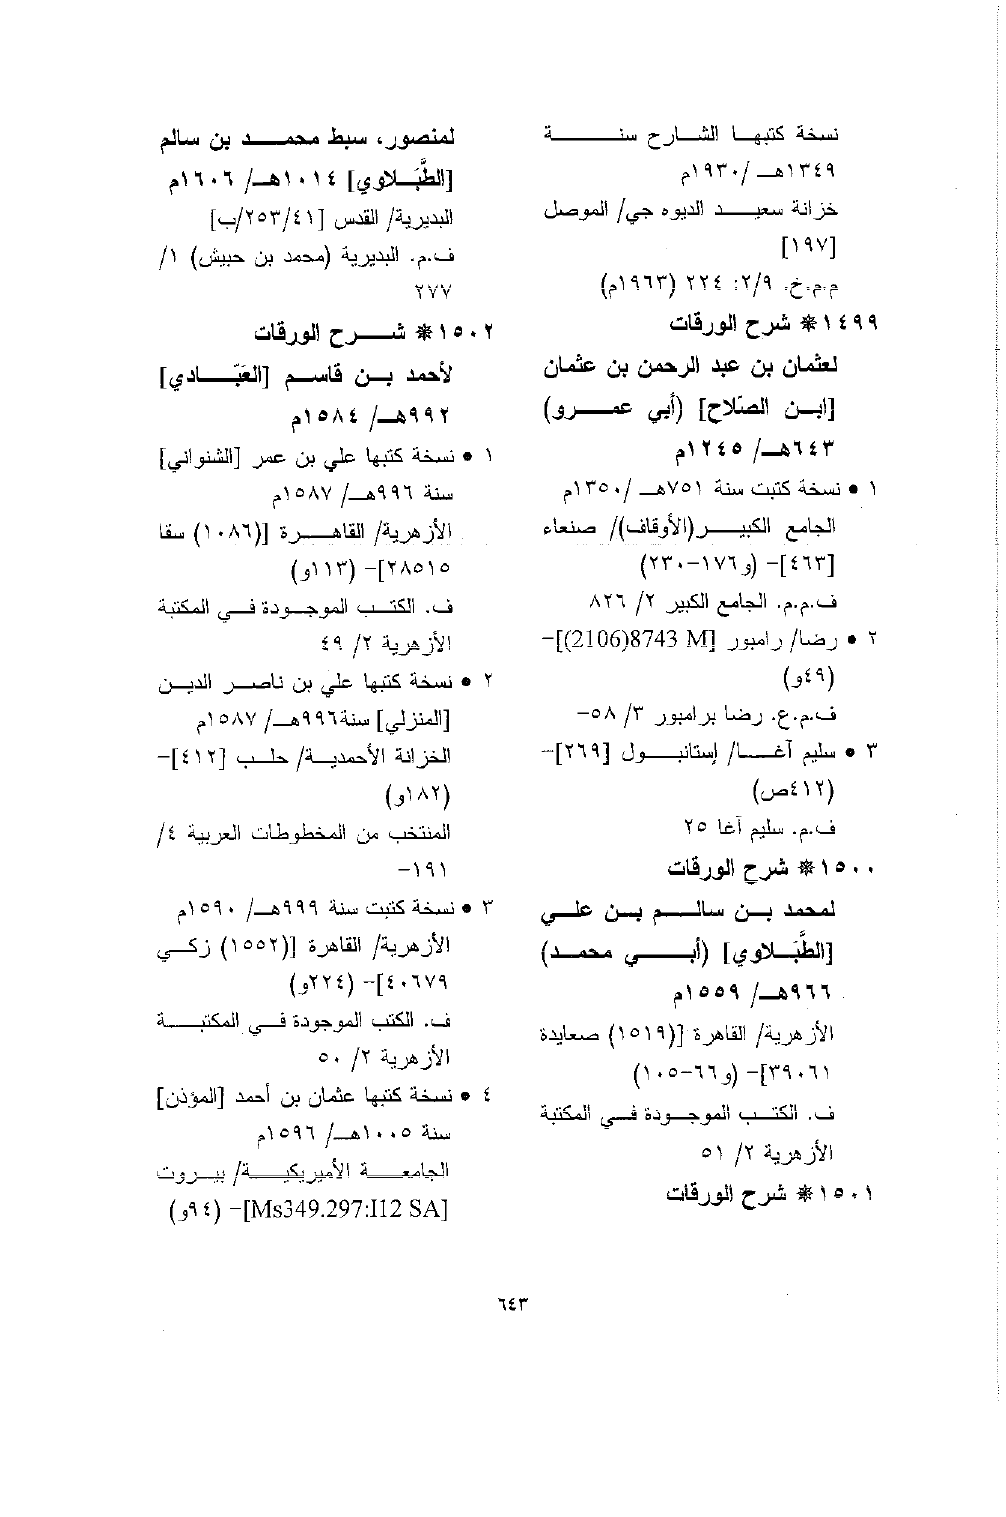 نسخة كتبها الشارح سنة
١٣٤٩هـ /١٩٣٠م
خزانة سعيد الديوه جي/ الموصل
[١٩٧]
م.م.خ. ٢/٩: ٢٢٤ (١٩٦٣م)
١٤٩٩* شرح الورقات
لعثمان بن عبد الرحمن بن عثمان
[ابن الصّلاح] (أبي عمرو)
٦٤٣هـ/ ١٢٤٥م
١ • نسخة كتبت سنة ٧٥١هـ /١٣٥٠م
الجامع الكبير(الأوقاف)/ صنعاء
[٤٦٣]- (و١٧٦-٢٣٠)
ف.م.م. الجامع الكبير ٢/ ٨٢٦
٢ • رضا/ رامبور [8743 M(2106)]-
(٤٩و)
ف.م.ع. رضا برامبور ٣/ ٥٨-
٣ • سليم آغا/ إستانبول [٢٦٩]-
(٤١٢ص)
ف.م. سليم آغا ٢٥
١٥٠٠* شرح الورقات
لمحمد بن سالم بن علي
[الطَّبَلاوي] (أبي محمد)
٩٦٦هـ/ ١٥٥٩م
الأزهرية/ القاهرة [(١٥١٩) صعايدة
٣٩٠٦١]- (و٦٦-١٠٥)
ف. الكتب الموجودة في المكتبة
الأزهرية ٢/ ٥١
١٥٠١* شرح الورقات
لمنصور، سبط محمد بن سالم
[الطَّبَلاوي] ١٠١٤هـ/ ١٦٠٦م
البديرية/ القدس [٢٥٣/٤١/ب]
ف.م. البديرية (محمد بن حبيش) ١/
٢٧٧
١٥٠٢* شرح الورقات
لأحمد بن قاسم [العَبّادي]
٩٩٢هـ/ ١٥٨٤م
١ • نسخة كتبها علي بن عمر [الشنواني]
سنة ٩٩٦هـ/ ١٥٨٧م
الأزهرية/ القاهرة [(١٠٨٦) سقا
٢٨٥١٥]- (١١٣و)
ف. الكتب الموجودة في المكتبة
الأزهرية ٢/ ٤٩
٢ • نسخة كتبها علي بن ناصر الدين
[المنزلي] سنة٩٩٦هـ/ ١٥٨٧م
الخزانة الأحمدية/ حلب [٤١٢]-
(١٨٢و)
المنتخب من المخطوطات العربية ٤/
١٩١-
٣ • نسخة كتبت سنة ٩٩٩هـ/ ١٥٩٠م
الأزهرية/ القاهرة [(١٥٥٢) زكي
٤٠٦٧٩]- (٢٢٤و)
ف. الكتب الموجودة في المكتبة
الأزهرية ٢/ ٥٠
٤ • نسخة كتبها عثمان بن أحمد [المؤذن]
سنة ١٠٠٥هـ/ ١٥٩٦م
الجامعة الأميريكية/ بيروت
[Ms349.297:I12 SA]- (٩٤و)
٦٤٣